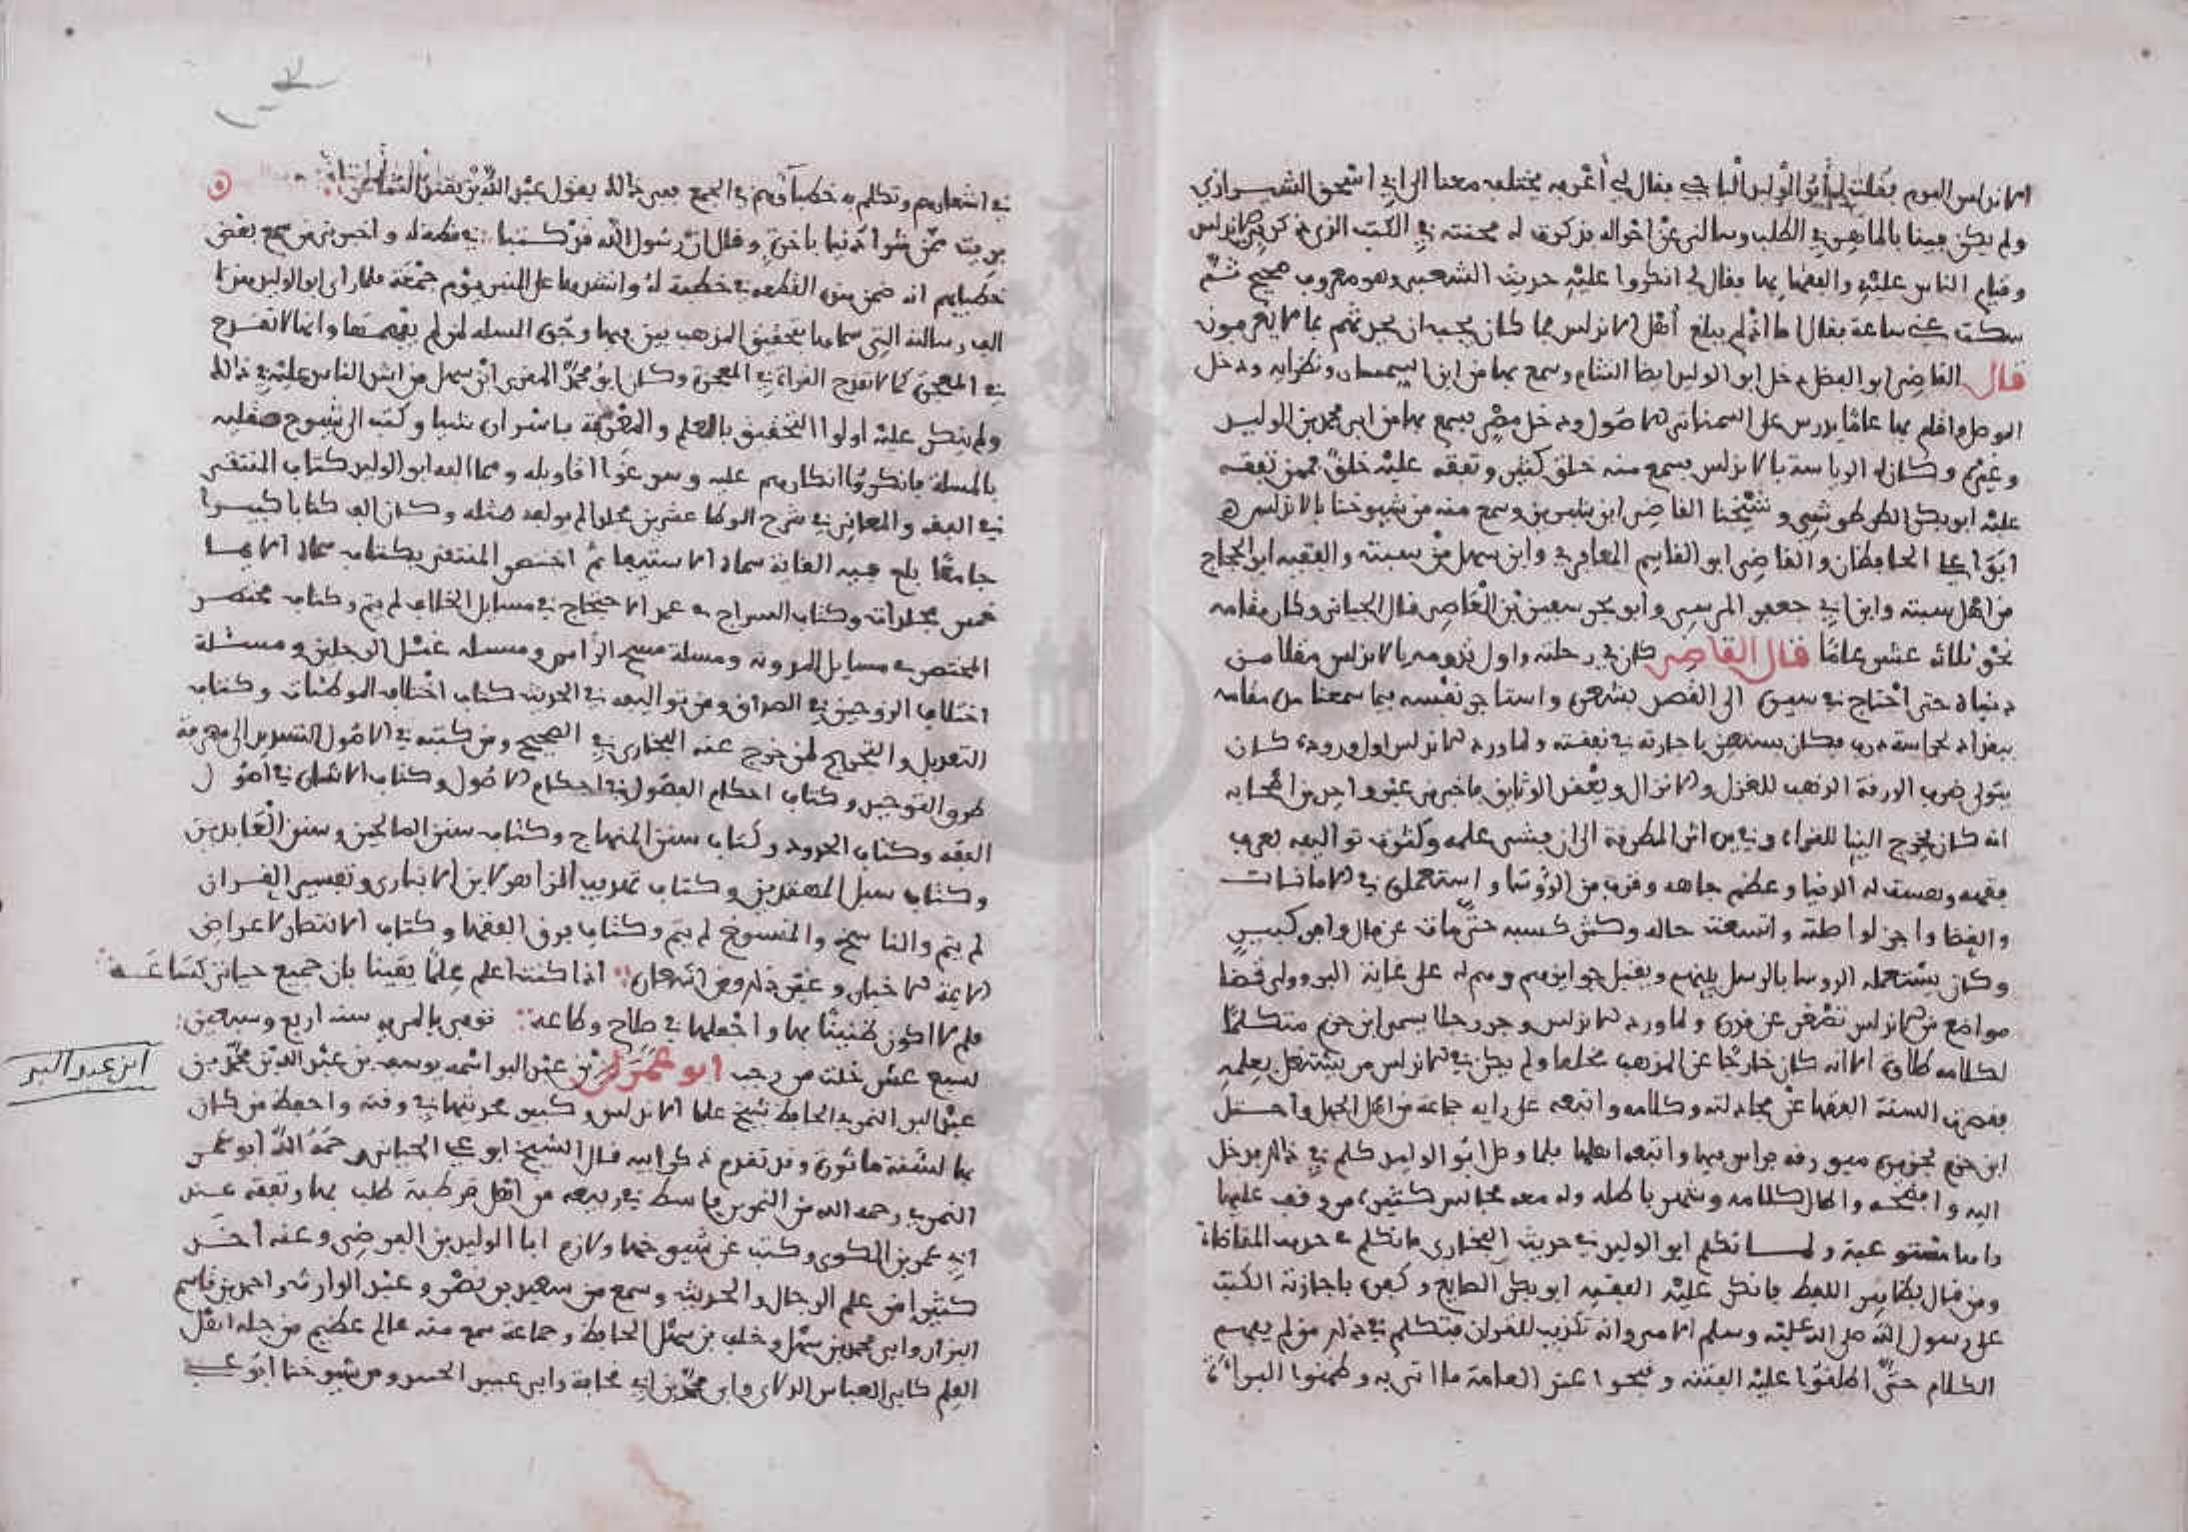 الاندلس اليوم فقلت له ابو الوليد الباجي فقال لي أعرفه يختلف معنا الى ابي اسحق الشيرازي
ولم يكن فينا بالماهر في الطلب وسالني عن احواله فذكرت له محنته في الكتب الذي ذكر بالاندلس
وقيام الناس عليه والفقها بها فقال لي انكروا عليه حديث الشعبي وهو معروف صحيح ثم
سكت عني ساعة فقال اما انه لم يبلغ أهل الاندلس مما كان يجب ان يحدثهم بما لا يعرفون
قال القاضي ابو الفضل دخل ابو الوليد ايضا الشام وسمع بها من ابن السمسار ونظرايه ودخل
الموصل واقام بها عاما يدرس على السمناني الاصول ودخل مصر فسمع بها من ابي محمد بن الوليد
وغيره وكان له الرياسة بالاندلس فسمع منه خلق كثير وتفقه عليه خلق فممن تفقه
عليه ابو بكر الطرطوشي وشيخنا القاضي ابن شبرين وسمع منه من شيوخنا بالاندلس
ابوا علي الحافظان والقاضي ابو القاسم المعافري وابن سهل من سبتة والفقيه ابن الحجاج
من اهل سبته وابن ابي جعفر المرسي وابو بحر سفين بن العاصي قال الجياني وكان مقامه
نحو ثلاثة عشر عاما قال القاضي كان في رحلته واول قدومه بالاندلس مقلا من
دنياه حتى احتاج في سفره الى القصد بشعره واستاجر نفسه فيما سمعنا من مقامه
ببغداد لحراسة درب فكان يستعين باجارته في نفقته ولما ورد الاندلس اول وروده كان
يتولى ضرب الورقة الذهب للغزل والانزال ويعقد الوثايق فاخبرني غير واحد من اصحابه
انه كان يخرج الينا للقراءة وفي يده اثر المطرقة الى ان فشى علمه وكثرت تواليفه فعرف
فقهه وبسطت له الدنيا وعظم جاهه وقرب من الرؤسا واستعملوه في الامانات
والقضا واجزلوا صلته واتسعت حاله وكثر كسبه حتى مات عن مال وافر كبير
وكان يستعمله الروسا بالرسل بينهم ويقبل جوايزهم وهم له على غاية البر وولي قضا
مواضع من الاندلس تصغر عن قدره ولما ورد الاندلس وجد رجلا يسمى ابن حزم متكلما
لكلامه طلاوة الا انه كان خارجا عن المذهب مخلفا ولم يكن في الاندلس من يشتغل بعلمه
فقصرت السنة الفقها عن مجادلته وكلامه واتبعه على رايه جماعة من اهل الجهل واحتل
ابن حزم بجزيرة ميورقه فراس فيها واتبعه اهلها فلما وصل ابو الوليد كلم في ذلك فدخل
اليه وافحمه وابطل كلامه وشهر باطله وله معه مجالس كثيرة من وقف عليها
راها مستوعبة ولما تكلم ابو الوليد في حديث البخاري ما تكلم في حديث المقاضاة
ومن قال بظاهر اللفظ فانكر عليه الفقيه ابو بكر الصايغ وكفره باجازته الكتب
على رسول الله صلى الله عليه وسلم الامي وانه تكذيب للقران فتكلم في ذلك من لم يفهم
الكلام حتى اطلقوا عليه الفتنه وقبحوا عند العامة ما اتى به وطعنوا
في اشعارهم وتكلم به خطباؤهم في الجمع ففي ذلك يقول عبد الله بن
بريت ممن شرا دنيا باخرة وقال ان رسول الله قد كتبا في قطعة له واخبرني من سمع بعض
خطبايهم انه ضمن هذه القطعه في خطبة له وانشدها على المنبر يوم جمعة فلما راى ابو الوليد هذا
الف رسالته التي سماها بتحقيق المذهب بين فيها وجوه المسله لمن لم يفهمها وانها لا تقدح
في المعجزة كما لا تقدح القراءة في المعجزة وكان ابو محمد المقرى ابن سهل من اشد الناس عليه في ذلك
ولم ينكر عليه اولوا التحقيق بالعلم والمعرفة باسرار شيا وكتب الى شيوخ صقليه
بالمسلة فانكروا انكارهم عليه وسوغوا اقاويله ومما الفه ابو الوليد كتاب المنتقى
في الفقه والمعاني في شرح الموطا عشرين مجلدا لم يولف مثله وكان الف كتابا كبيرا
جامعا بلغ فيه الغاية سماه الاستيفا ثم اختصر المنتقى بكتاب سماه الايما
خمس مجلدات وكتاب السراج في عمل الاحتجاج في مسايل الخلاف لم يتم وكتاب مختصر
المختصر في مسايل المدونة ومسلة مسح الراس ومسلة غسل الرجلين ومسئلة
اختلاف الزوجين في الصداق ومن تواليفه في الحديث كتاب اختلاف الموطئات وكتاب
التعديل والتجريح لمن خرج عنه البخاري في الصحيح ومن كتبه في الاصول التسديد الى معرفة
طرق التوحيد وكتاب احكام الفصول في احكام الاصول وكتاب الاشارة في اصول
الفقه وكتاب الحدود وكتاب سنن المنهاج وكتاب سنن الصالحين وسنن العابدين
وكتاب سبل المهتدين وكتاب تهذيب الزاهر لابن الانباري وتفسير القران
لم يتم والناسخ والمنسوخ لم يتم وكتاب فرق الفقها وكتاب الانتصار لاعراض
الايمة الاخيار وغير ذلك ومن اشعاره اذا كنت اعلم علما يقينا بان جميع حياتي كساعه
فلم لا اكون ضنينا بها واجعلها في صلاح وطاعه توفي بالمرية سنة اربع وسبعين
لسبع عشر خلت من رجب ابو عمر بن عبد البر اسمه يوسف بن عبد الله بن محمد بن
عبد البر النمري الحافظ شيخ علما الاندلس وكبير محدثيها في وقته واحفظ من كان
بها لسنة ماثورة وقد تقدم ذكر ابيه قال الشيخ ابو علي الجياني رحمه الله ابو عمر
النمري رحمه الله من النمر بن قاسط في ربيعه من اهل قرطبة طلب بها وتفقه عند
ابي عمر بن المكوى وكتب عن شيوخها ولازم ابا الوليد بن الفرضي وعنه اخذ
كثيرا من علم الرجال والحديث وسمع من سعيد بن نصر وعبد الوارث واحمد بن قاسم
البزار وابي محمد بن وخلف بن سهل الحافظ وجماعة سمع منه عالم عظيم من جلة اهل
العلم كابي العباس الدلاى وابي محمد بن ابي قحافة وابي عبد الحميدي ومن شيوخنا ابو علي
ابن عبد البر